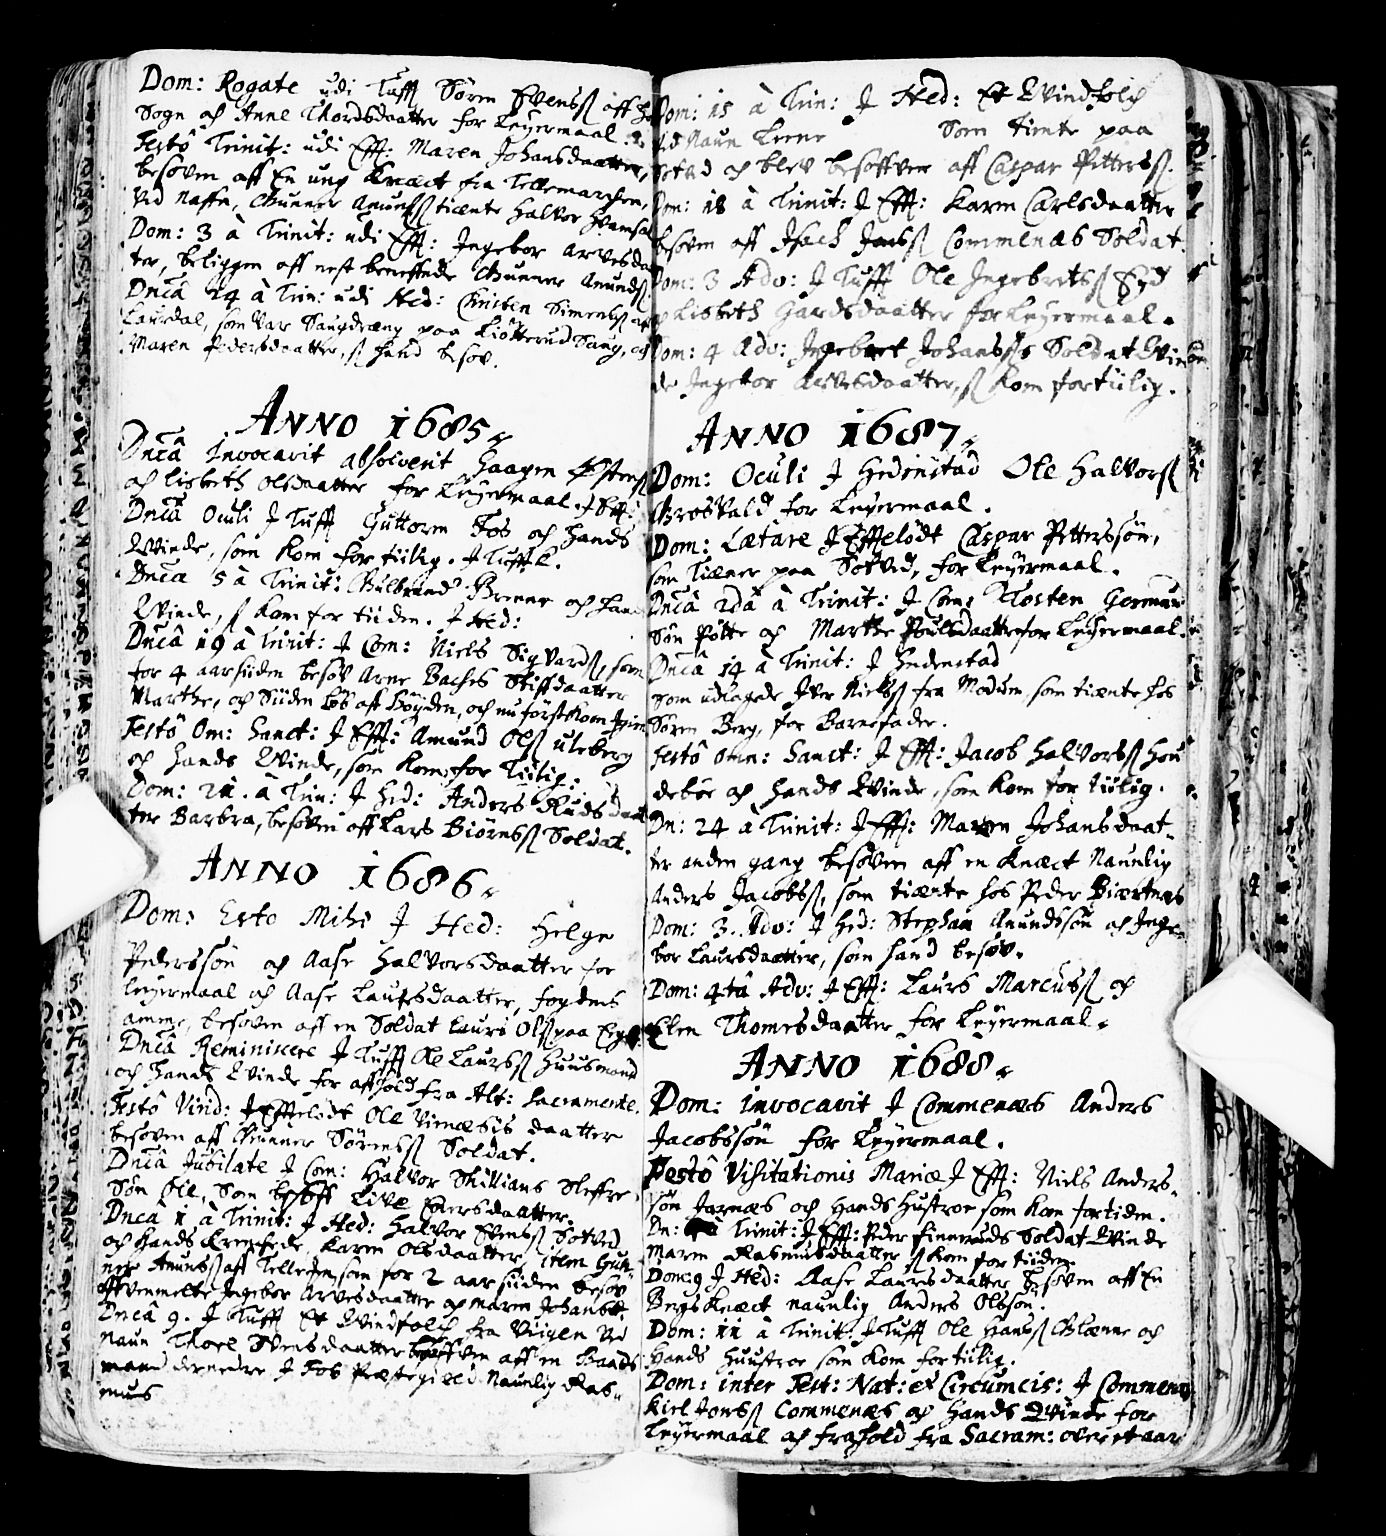 Dom: Rogate udi Tufft Sören Svenß aff
Sogn och Anne Thordsdaatter for Leyermaal.
Festô Trinit: udi Efft: Maren Johansdaatter,
besoven aff En ung Knæct fra Tellemarchen,
ved naffn, Gunner Amundß tiænte Halvor
Dom: 3 à Trinit: udi Efft: Ingebor Arvesdaa
ter, beligger aff nest bemeffnde Gunner Amundß.
Dncâ 24 à Trin: udi Hed: Christen Simenß
Laurdal, som var Saugdræng paa Kiötterud Saug, och
Maren Pedersdaatter, ß hand besov.
ANNO 1685.
Dncâ Invocavit absolverit Haagen
och Lisbeth Olsdaatter for Leyermaal. I Efft:
Dncâ Oculi I Tufft Guttorm Fos och hands
Qvinde, som kom for tiilig. I Tufft
Dnca 5 à Trinit: Gulbrand Brenne och hans
Qvinde, ß kom for tiiden. I Hed:
Dncâ 19 à Trinit: I Com: Niels Sigvardß, som
for 4 aar siiden besov Arne Baches Stiffdaatter
Marthe, och Siiden löb aff Böyden, och nu först kom igien
Festô Om: Sanct: I Efft: Amund Olß uleberg
och hands Qvinde, som kom for Tiilig.
Dom: 21. à Trin: I Hed: Anders Ruds daat
ter Barbra, besoven aff Lars Biörnß Soldat.
ANNO 1686.
Dom: Esto Mihi I Hed: Helge
Pederssön och Aase Halvorsdaatter for
leyermaal och Aase Laursdaatter, fogdens
amme, besoven aff en Soldat Laurs Olß paa
Dncâ Reminiscere I Tufft Ole Laurß Huusmand
och hands Qvinde for affhold fra Alt: Sacramente.
Festô Vind: I Efftelødt Ole Vimæsis daatter
besoven aff Gunner Sörenß Soldat.
Dncâ Jubilate I Com: Halvor Skillians Sleffre
Sön Ole, som besoff Live Einersdaatter.
Dncâ 1 à Trinit: I Hed: Halvor Svenß Sotved
och hands Karen Olsdaatter, item Gun
ner Amunß aff Tellegen, som for 2 aar siiden besov
offvenmelte Ingebor Arvesdaatter och Maren Johansd:
Dncâ 9. I Tufft Et Qvindfolch fra Viigen ved
naun Thore Svensdaatter besoffven aff en Baads
mand dernedre I Fos Præstegield. Naunlig Ras-
mus
Dom: 15 à Trin: I Hed: Et Qvindfolch
ved Naun Lene som tiente paa
Sotvd och blev besoffven aff Caspar Pitterß.
Dom: 18 à Trinit: I Efft: Karen Carlsdaatter
besoven aff Isach Jacobß Commenæs Soldat.
Dom: 3 Adv: I Tufft Ole Ingebretß Syd
och Lisbeth Gardsdaatter for Leyermaal.
Dom: 4 Adv: Ingebret Johanßs Soldat Qvin
de Ingebor Arvesdaatter, ß kom fortiilig.
ANNO 1687.
Dom: Oculi I Hedenstad Ole Halvorß
Grosvald for Leyermaal.
Dom: Lætare I Efftelødt Caspar Pitterssön,
som Tiæner paa Sotved, for Leyermaal.
Dncâ 2dâ à Trinit: I Com: Tosten German
Sön Pötte och Marthe Poulsdaatter for Leyermaal.
Dncâ 14 à Trinit: I Hedenstad
som udlagde Iver Nielß fra Modum som tiænte hos
Sören Berg, for Barnefader.
Festô Omn: Sanct: I Efft: Jacob Halvorß Hou
deböe och hands Qvinde, som kom for tiilig.
Dn: 24 à Trinit: I Efft: Maren Johansdaat-
ter anden gang besoven aff en Knæct Naunlig
Anders Jacobß, som tiænte hos Peder Biærtnes
Dom: 3. Adv: I Hed: Stephan Amundssön och Inge-
bor Laursdaatter, som hand besov.
Dom: 4tâ Adv: I Efft: Laurs Marcusß och
Elen Thomesdaatter for Leyermaal.
ANNO 1688.
Dom: invocavit I Commenæs Anders
Jacobssön for Leyermaal.
Festô Visitationis Mariæ I Efft: Niels Anders-
sön Jarnæs och hands Hustroe som kom fortiden.
Dn: à Trinit: I Efft: Peder Finneruds Soldat Qvinde
Maren Rasmusdaatter ß kom for tiiden.
Dom: 9 I Hed: Aase Laursdaatter besoven aff En
Bergs Knæct naunlig Anders Olssön.
Dom: 11 à Trinit: I Tufft Ole Hansß Glænne och
Hands Huustroe som kom fortiilig.
Dom: inter Fest: Nat: et Circumcis: I Commenæs
Kiel Jonß Commenæs och hands Qvinde for
Leyermaal och frahold fra Sacram: over et aar